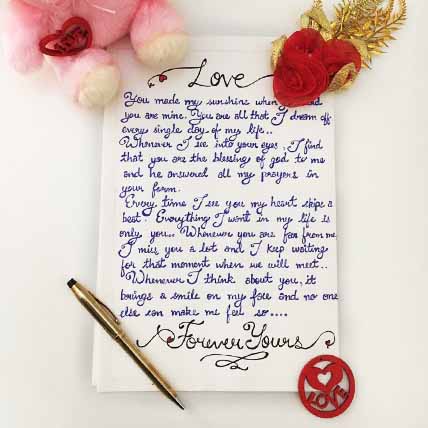 LOVE
Love
You made my sunshine when
you are mine. You are all that I dream off
every single day of my life..
Whenever I see into your eyes, I find
that you are the blessing of god to me
and he answered all my prayers in
your form.
Every time I see you my heart skips a
beat. Everything I want in my life is
only you.. Whenever you are far from me
I miss you a lot and I keep waiting
for that moment when we will meet..
Whenever I think about you, it
brings a smile on my face and no one
else can make me feel so....
Forever Yours
LOVE